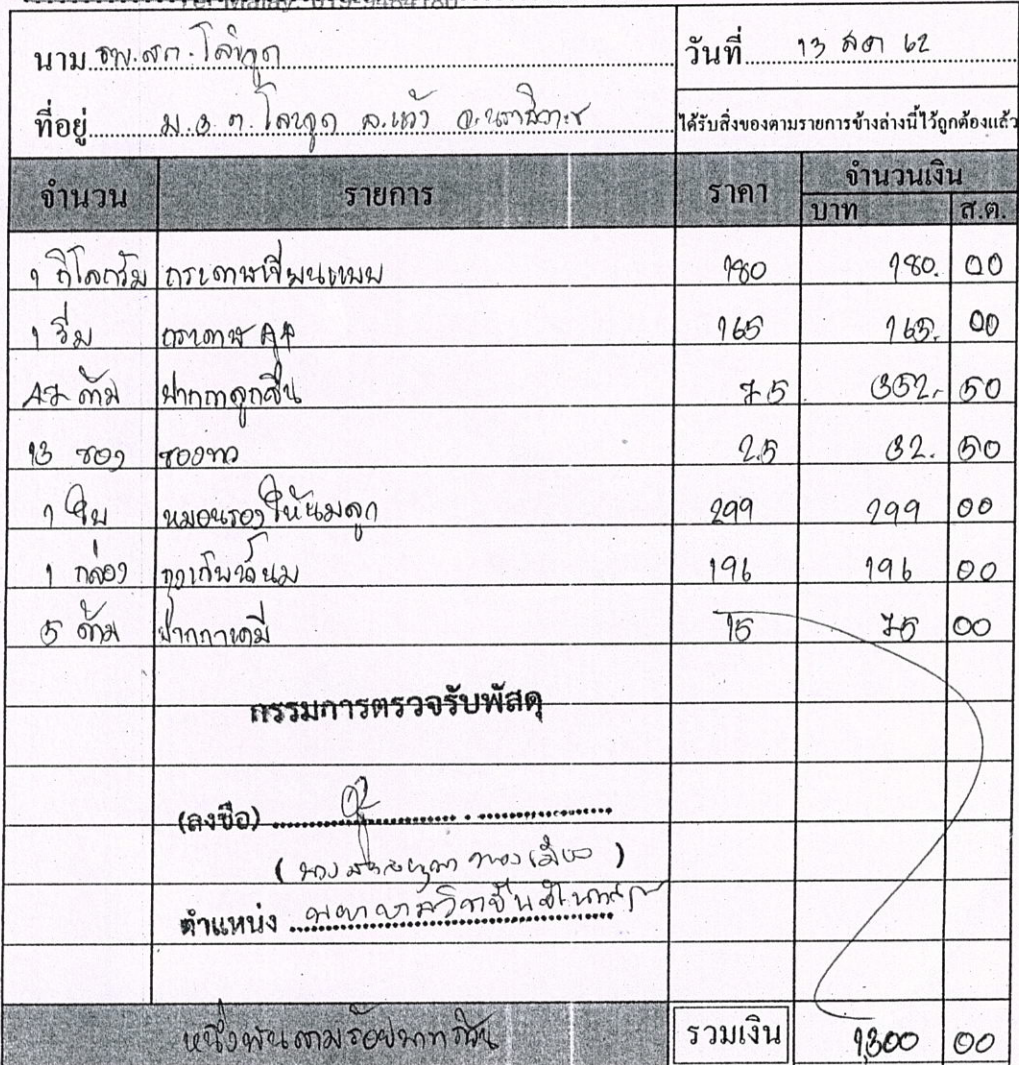 นาม รพ.สต. โละจูด วันที่ 13 สค 62
ที่อยู่ ม.3 ต. โละจูด อ.แว้ง จ.นราธิวาส ได้รับสิ่งของตามรายการข้างล่างนี้ไว้ถูกต้องแล้ว
จำนวน รายการ ราคา จำนวนเงิน
บาท ส.ต.
1 กิโลกรัม กระดาษเทียนแบบ 180 180. 00
1 รีม กระดาษ A4 165 165. 00
47 ด้าม ปากกาลูกลื่น 7.5 352.- 50
13 ซอง ซองขาว 2.5 32. 50
1 ใบ หมอนรองให้นมลูก 299 299 00
1 กล่อง ถุงเก็บน้ำนม 196 196 00
5 ด้าม ปากกาเคมี 15 75 00
กรรมการตรวจรับพัสดุ
(ลงชื่อ)
( นาง )
ตำแหน่ง พยาบาลวิชาชีพชำนาญการ
หนึ่งพันสามร้อยบาทถ้วน รวมเงิน 1,300 00